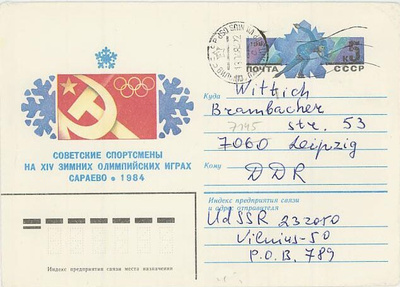 ПОЧТА СССР
5
к
Куда
Wittich
Brambacher
7145 str. 53
7060 Leipzig
Кому
DDR
СОВЕТСКИЕ СПОРТСМЕНЫ
НА XIV ЗИМНИХ ОЛИМПИЙСКИХ ИГРАХ
САРАЕВО • 1984
Индекс предприятия связи
и адрес отправителя
UdSSR 232050
Vilnius-50
P.O.B. 789
Индекс предприятия связи места назначения